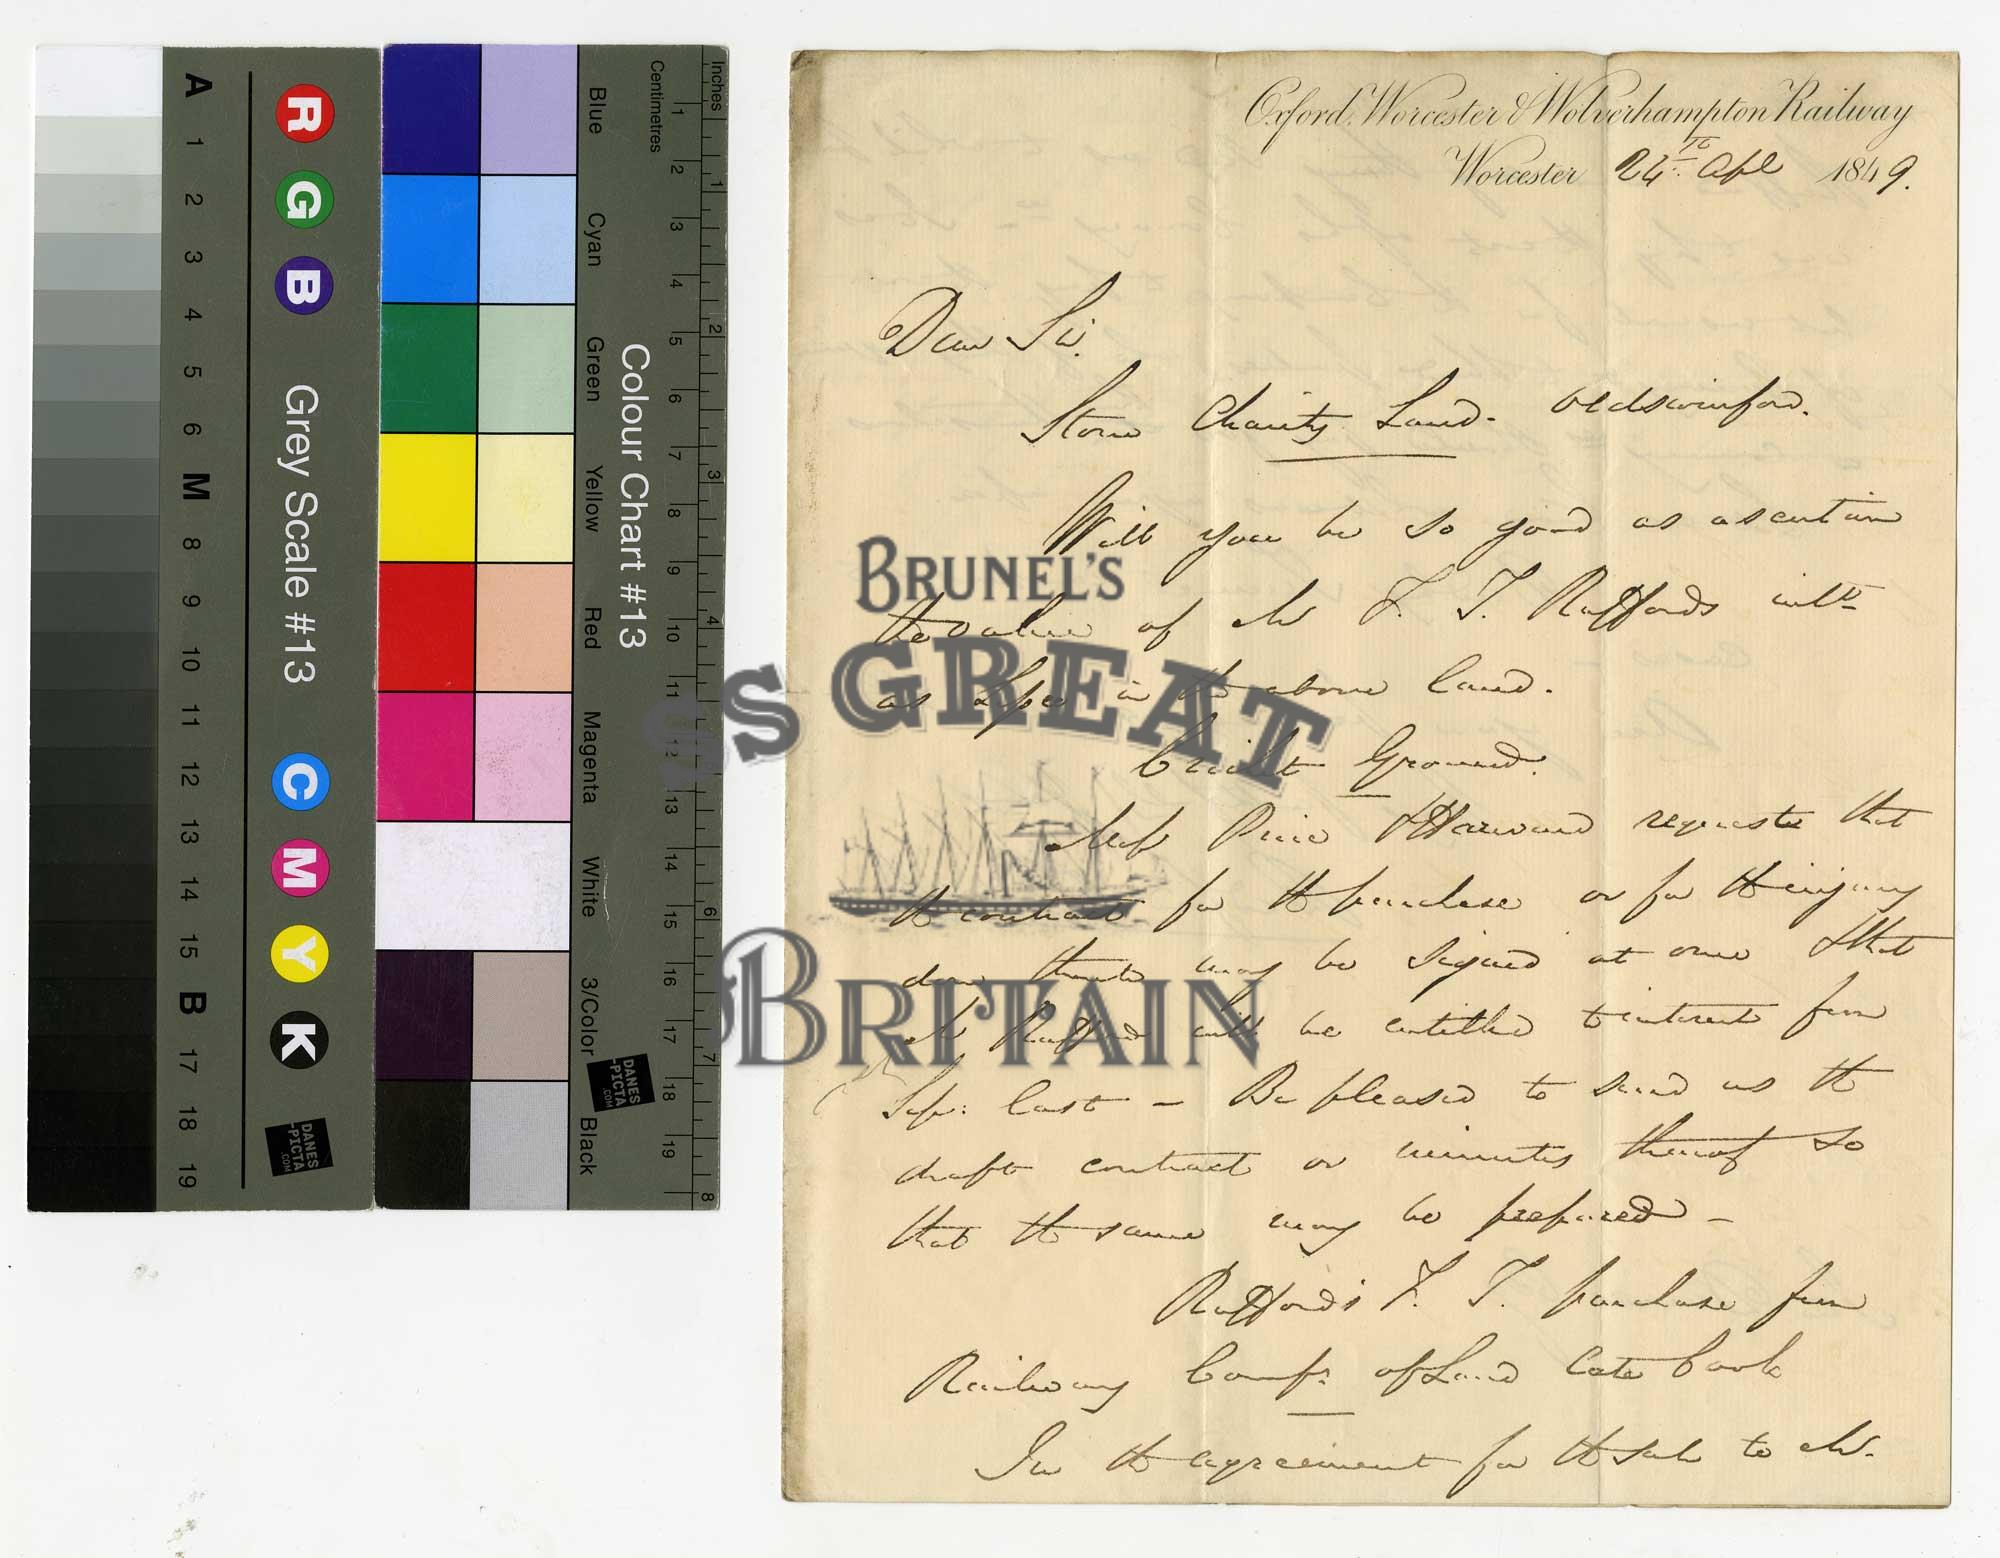 A
1
2
3
4
5
6
M
8
9
10
11
12
13
14
15
B
17
18
19
R
G
B
Grey Scale #13
C
M
Y
K
DANES
-PICTA
.COM
Blue
Cyan
Green
Yellow
Red
Magenta
White
3/Color
Black
Colour Chart #13
DANES
-PICTA
.COM
Centimetres
Inches
1
2
3
4
5
6
7
8
9
10
11
12
13
14
15
16
17
18
19
1
2
3
4
6
7
8
Oxford, Worcester & Wolverhampton Railway
Worcester 24th Apl 1849.
Dear Sir.
Stone Charity Land. Oldswinford.
Will you be so good as ascertain
the value of Mr F. T. Ruffords
as in the above land.
Cricket Ground.
Messrs Price & Harward requests that
the contract for the purchase or for the injury
done thereto may be signed at once & that
Mr Rufford will be entitled to interest from
Sepr. last – Be pleased to send us the
draft contract or minutes thereof so
that the same may be prepared –
Rufford's F. T. purchase from
Railway Compy. of Land
In the agreement for the sale to Mr.
BRUNEL'S
SS GREAT
BRITAIN